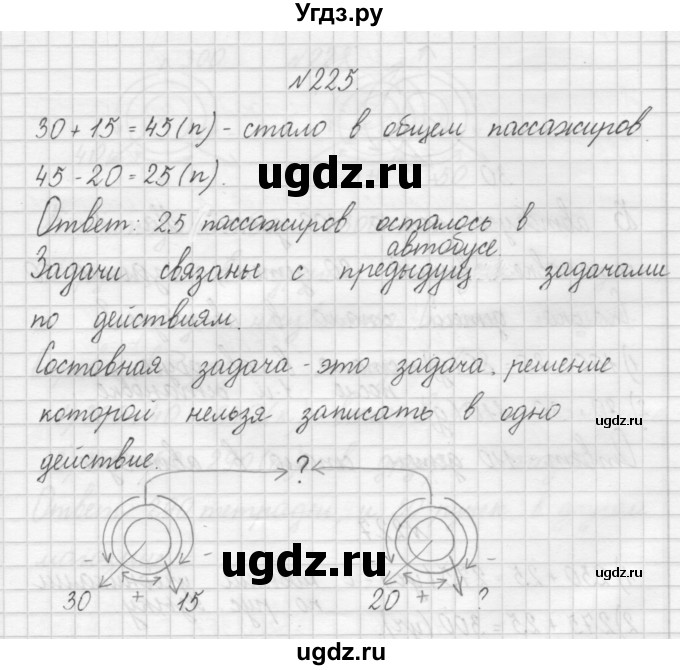 Угдз.ру
№225.
30 + 15 = 45 (п) - стало в общем пассажиров.
ugdz.ru
45 - 20 = 25 (п).
Ответ: 25 пассажиров осталось в
автобусе.
Задачи связаны с предыдущ задачами
по действиям.
ugdz.ru
Состовная задача - это задача, решение
которой нельзя записать в одно
ugdz.ru
действие.
?
- - - -
ugdz.ru
30 + 15 20 + ?
ugdz.ru
ugdz.ru